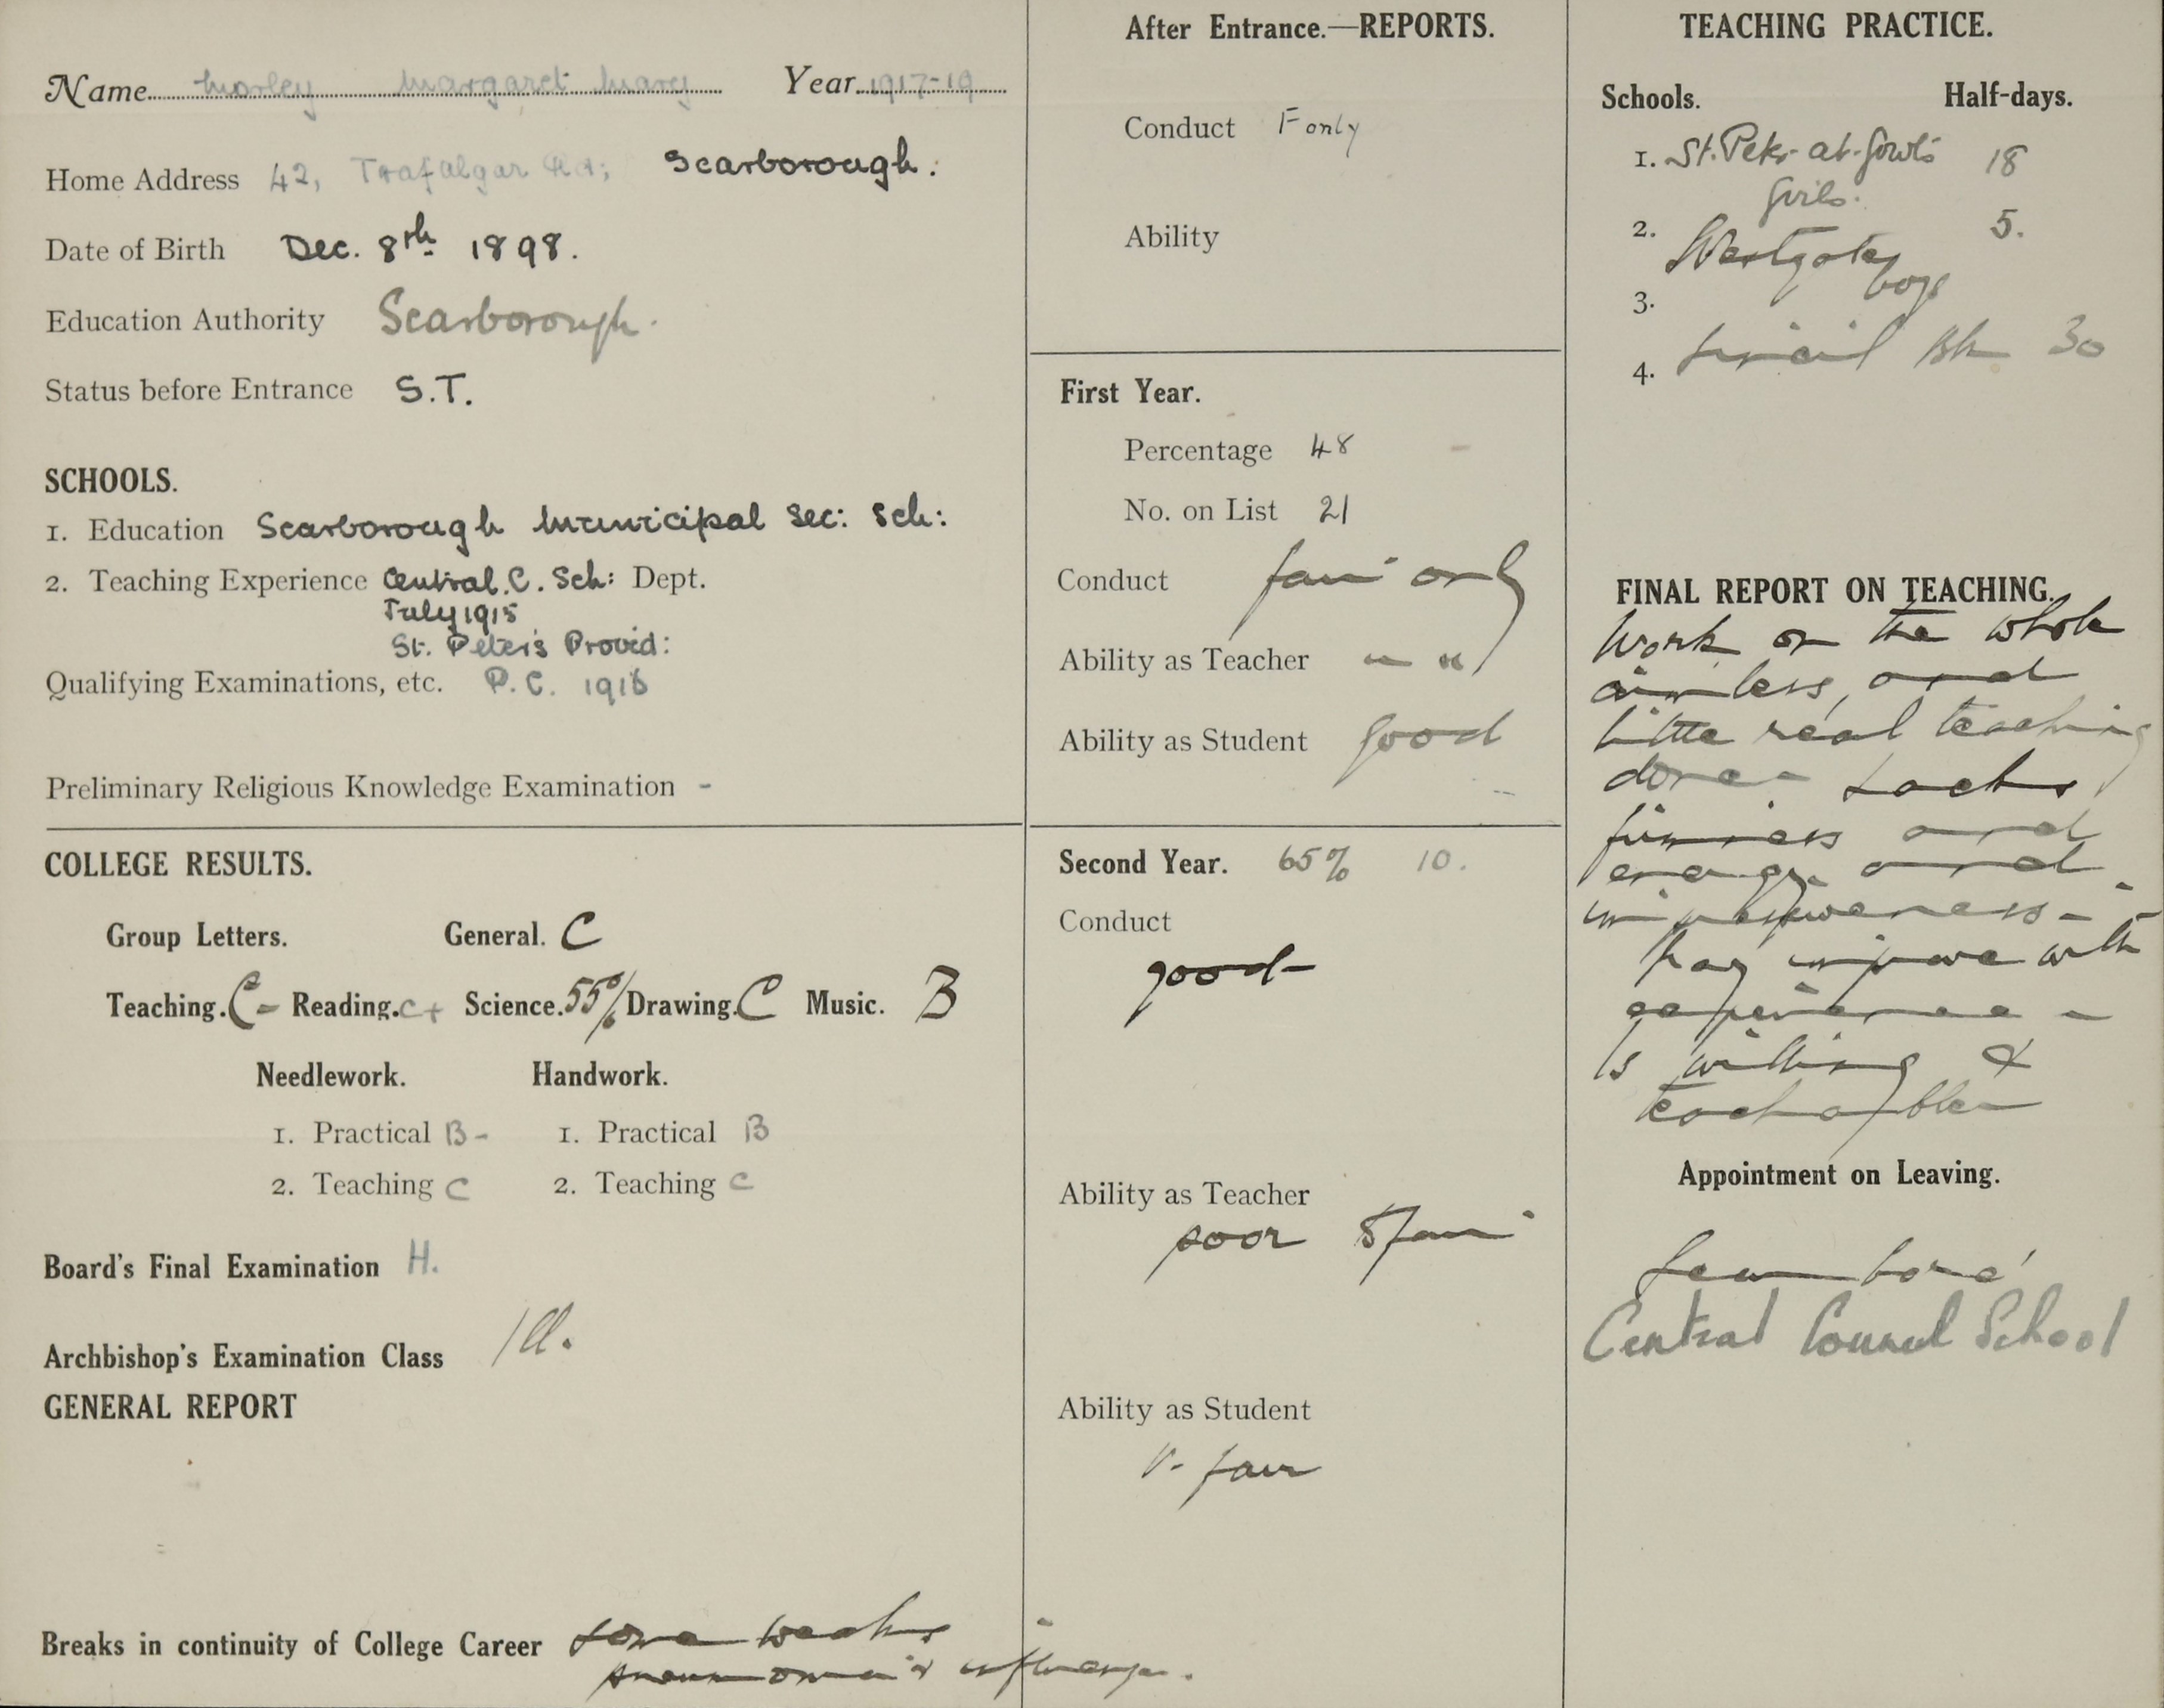 Name Morley Margaret Mary Year 1917-19
Home Address 42, Trafalgar Rd; Scarborough.
Date of Birth Dec. 8th 1898.
Education Authority Scarborough.
Status before Entrance S.T.
SCHOOLS.
1. Education Scarborough Municipal Sec: Sch:
2. Teaching Experience Central.C. Sch: Dept.
July 1915
St. Peter's Provid:
Qualifying Examinations, etc. P.C. 1916
Preliminary Religious Knowledge Examination -
COLLEGE RESULTS.
Group Letters. General. C
Teaching. C- Reading. C+ Science. 55% Drawing. C Music. B
Needlework. Handwork.
1. Practical B- 1. Practical B
2. Teaching C 2. Teaching C
Board's Final Examination H.
Archbishop's Examination Class III.
GENERAL REPORT
Breaks in continuity of College Career weeks
pneumonia & influenza.
After Entrance.—REPORTS.
Conduct F only
Ability
First Year.
Percentage 48
No. on List 21
Conduct fair only
Ability as Teacher " "
Ability as Student good
Second Year. 65% 10.
Conduct
good
Ability as Teacher
poor fair
Ability as Student
V. fair
TEACHING PRACTICE.
Schools. Half-days.
1. St. Peter-at-Gowts 18
Girls.
2. Westgate 5.
boys
3.
4. 30
FINAL REPORT ON TEACHING.
Work on the whole
aimless, and
little real teaching
done - Lacks
firmness and
energy and
impressiveness -
May improve with
experience -
Is willing &
teachable
Appointment on Leaving.
Scarboro'
Central Council School